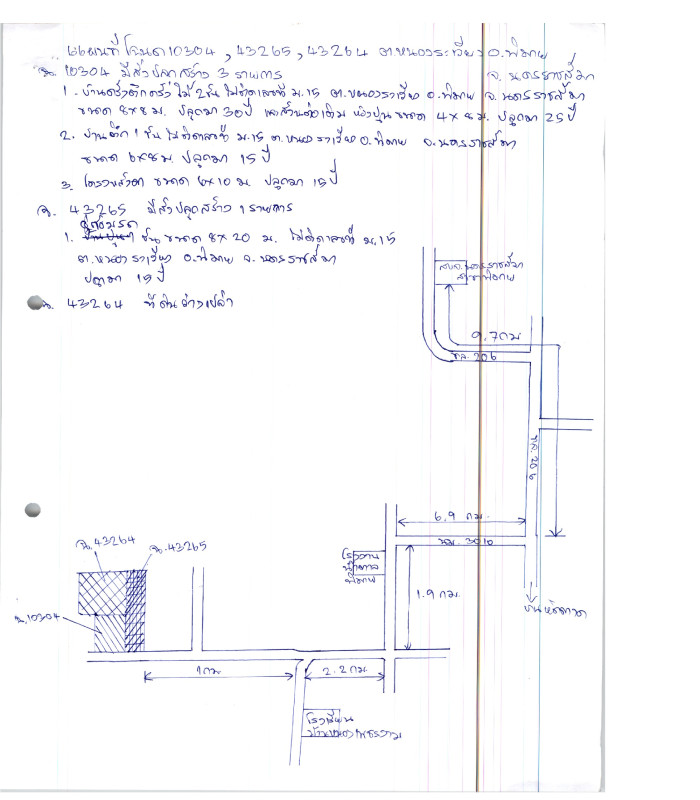 แผนที่ โฉนด 10304 , 43265 , 43264 ต.หนองระเวียง อ.พิมาย
จ. นครราชสีมา
ฉ. 10304 มีสิ่งปลูกสร้าง 3 รายการ
1. บ้านครึ่งตึกครึ่งไม้ 2 ชั้น ไม่ติดเลขที่ ม.15 ต.หนองระเวียง อ.พิมาย จ.นครราชสีมา
ขนาด 8x8 ม. ปลูกมา 30 ปี และส่วนต่อเติม ขนาด 4x8 ม. ปลูกมา 25 ปี
2. บ้านตึก 1 ชั้น ไม่ติดเลขที่ ม.15 ต.หนองระเวียง อ.พิมาย จ.นครราชสีมา
ขนาด 6x8 ม. ปลูกมา 15 ปี
3. ขนาด 6x10 ม. ปลูกมา 15 ปี
ฉ. 43265 มีสิ่งปลูกสร้าง 1 รายการ
1. ชั้น ขนาด 8x20 ม. ไม่ติดเลขที่ ม.15
ต.หนองระเวียง อ.พิมาย จ.นครราชสีมา
ปลูกมา 15 ปี
ฉ. 43264 ที่ดินว่างเปล่า
สนง.นครราชสีมา
สาขาพิมาย
9.7 กม
ทล. 206
ทล. 206
6.9 กม.
นม. 3016
ฉ. 43264
ฉ. 43265
โรงงาน
น้ำตาล
พิมาย
1.9 กม.
ฉ. 10304
1 กม
2.2 กม.
โรงเรียน